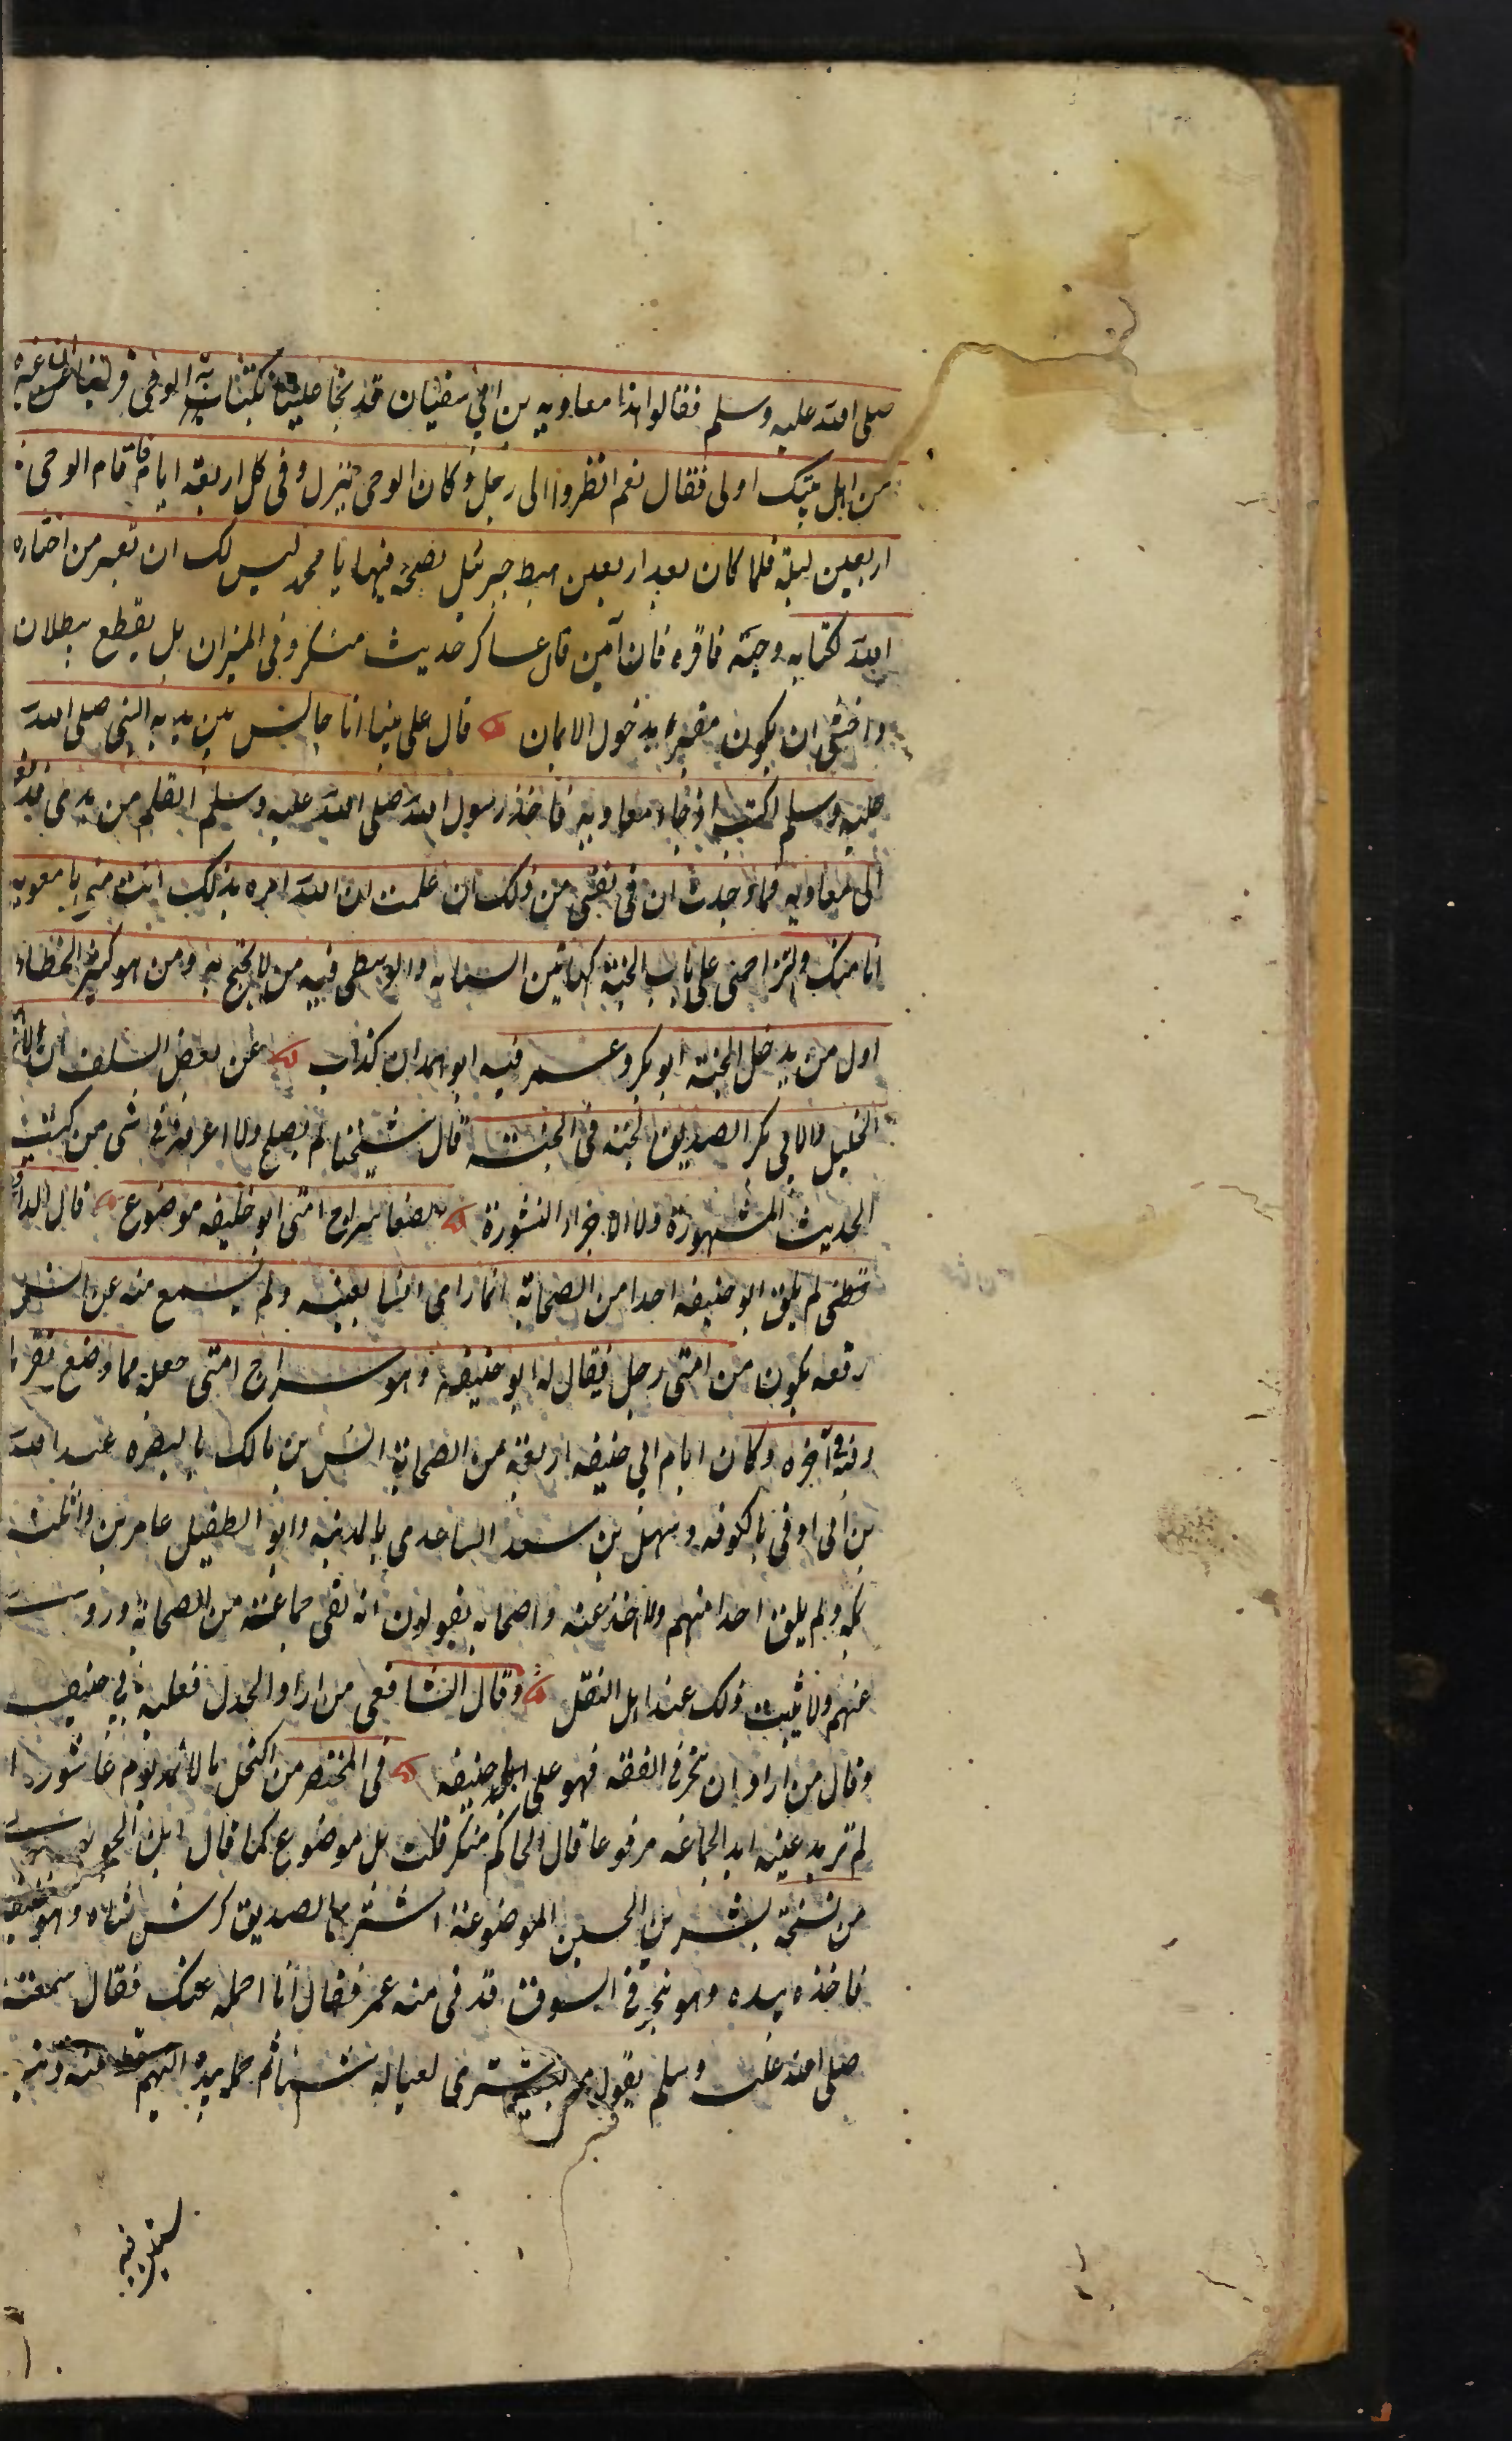 صلى الله عليه وسلم فقالوا هذا معاوية بن ابي سفيان قد
من اهل بيتك اولى فقال نعم انظروا الى رجل وكان الوحي ينزل في كل اربعة ايام فاقام الوحي
اربعين ليلة فلما كان بعد اربعين هبط جبرئيل بصحيفة فيها يا محمد ليس لك ان تغير من اختاره
الله لكتابه وحيه فاقره فانه امين قال عساكر حديث منكر وفي الميزان بل يقطع ببطلان
واخشى ان يكون مفترى بدخول الايمان قال علي بينا انا جالس بين يديه النبي صلى الله
عليه وسلم اكتب اذ جاء معاوية فاخذ رسول الله صلى الله عليه وسلم القلم من يدي فدفعه
الى معاوية فما وجدت ان في نفسي من ذلك ان علمت ان الله امره بذلك انت مني يا معوية
انا منك ولتزاحمني على باب الجنة كهاتين السبابة والوسطى فيه من لا يحتج به ومن هو كثير الخطاء
اول من يدخل الجنة ابو بكر وعمر فيه ابو همدان كذاب عن بعض السلف ان
الخليل ولابي بكر الصديق لحية في الجنة قال شيخنا لم يصح ولا اعرفه في شي من كتب
الحديث المشهورة ولا الاجزاء المنثورة الصغا سراج امتى ابو حنيفة موضوع قال الدار
قطني لم يلق ابو حنيفة احدا من الصحابة انما راى انسا بعينه ولم يسمع منه عن انس
رفعه يكون من امتى رجل فيقال له ابو حنيفة وهو سراج امتى
وفي اخره وكان ايام ابي حنيفة اربعة من الصحابة انس بن مالك بالبصرة عبد الله
بن ابي اوفى بالكوفة وسهل بن سعد الساعدي بالمدينة وابو الطفيل عامر بن واثلة
بمكة ولم يلق احدا منهم ولا اخذ عنه واصحابه يقولون انه لقى جماعة من الصحابة وروى
عنهم ولا يثبت ذلك عند اهل النقل وقال الشافعي من اراد الجدل فعليه بابي حنيفة
وقال من اراد ان يتبحر في الفقه فهو على ابي حنيفة في المختصر من اكتحل بالاثمد يوم عاشورا
لم ترمد عينه ابدا لجماعة مرفوعا قال الحاكم منكر قلت بل موضوع كما قال ابن الجوزي
من نسخة بشر بن الحسين الموضوعة اشترى الصديق كرش شاة وهو خليفة
فاخذه بيده وهو يتبختر في السوق فدنى منه عمر فقال انا احمله عنك فقال سمعته
صلى الله عليه وسلم يقول من يشترى لعياله شيئا ثم حمله بيده اليهم سقط عنه ذنبه